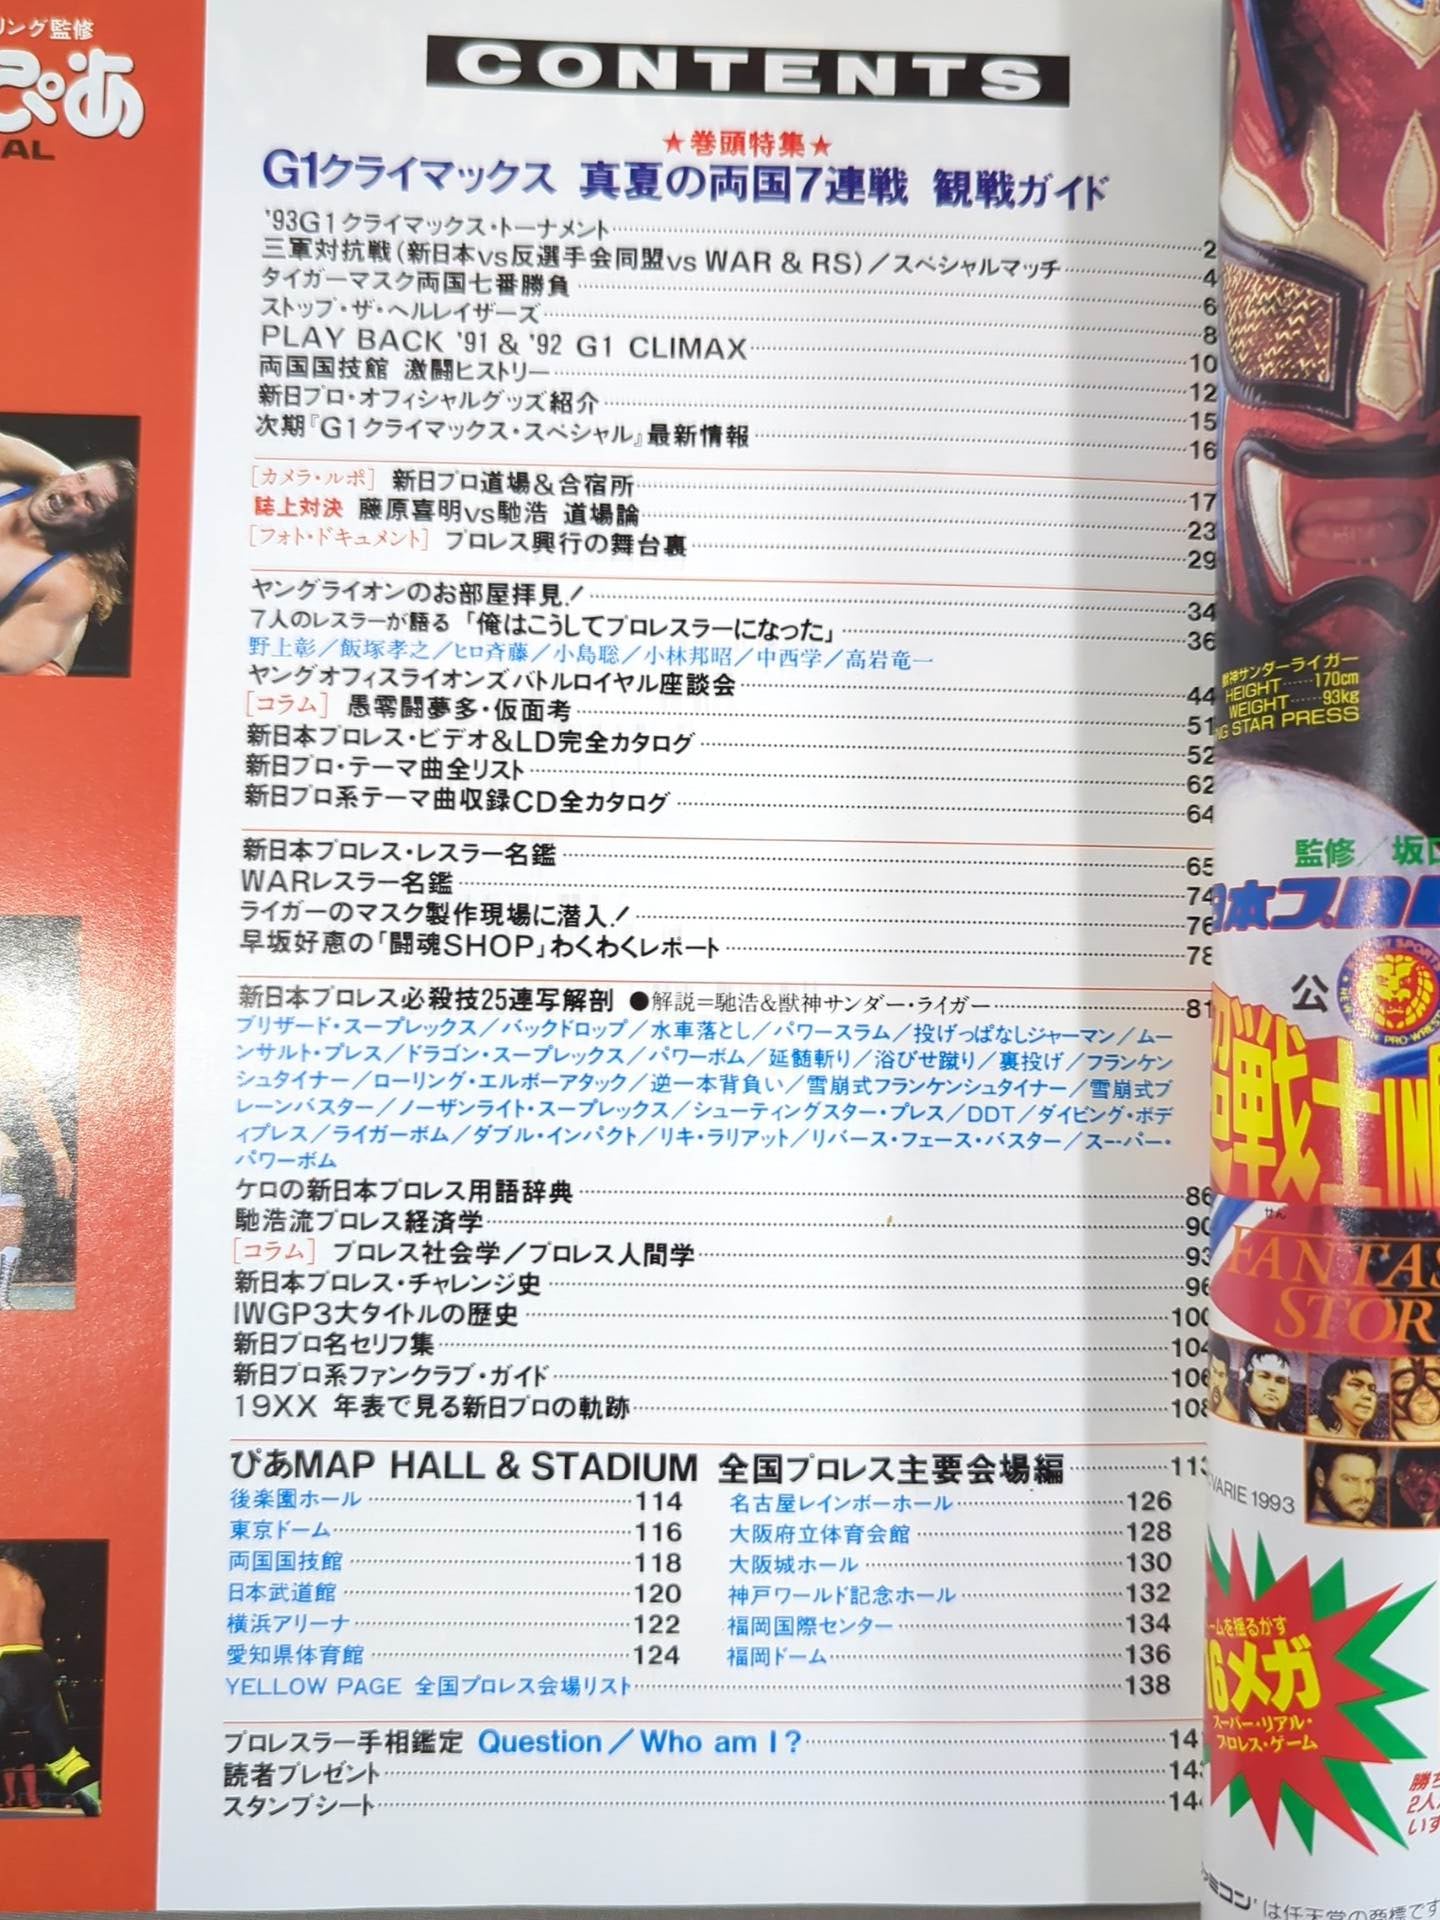 リング監修
ぴあ
AL
CONTENTS
★巻頭特集★
G1クライマックス 真夏の両国7連戦 観戦ガイド
'93G1クライマックス・トーナメント 2
三軍対抗戦(新日本vs反選手会同盟vs WAR & RS)／スペシャルマッチ 4
タイガーマスク両国七番勝負 6
ストップ・ザ・ヘルレイザーズ 8
PLAY BACK '91 & '92 G1 CLIMAX 10
両国国技館 激闘ヒストリー 12
新日プロ・オフィシャルグッズ紹介 15
次期『G1クライマックス・スペシャル』最新情報 16
[カメラ・ルポ] 新日プロ道場&合宿所 17
誌上対決 藤原喜明vs馳浩 道場論 23
[フォト・ドキュメント] プロレス興行の舞台裏 29
ヤングライオンのお部屋拝見! 34
7人のレスラーが語る「俺はこうしてプロレスラーになった」 36
野上彰／飯塚孝之／ヒロ斉藤／小島聡／小林邦昭／中西学／高岩竜一
ヤングオフィスライオンズバトルロイヤル座談会 44
[コラム] 愚零闘夢多・仮面考 51
新日本プロレス・ビデオ&LD完全カタログ 52
新日プロ・テーマ曲全リスト 62
新日プロ系テーマ曲収録CD全カタログ 64
新日本プロレス・レスラー名鑑 65
WARレスラー名鑑 74
ライガーのマスク製作現場に潜入! 76
早坂好恵の「闘魂SHOP」わくわくレポート 78
新日本プロレス必殺技25連写解剖 ●解説＝馳浩&獣神サンダー・ライガー 81
ブリザード・スープレックス／バックドロップ／水車落とし／パワースラム／投げっぱなしジャーマン／ムー
ンサルト・プレス／ドラゴン・スープレックス／パワーボム／延髄斬り／浴びせ蹴り／裏投げ／フランケン
シュタイナー／ローリング・エルボーアタック／逆一本背負い／雪崩式フランケンシュタイナー／雪崩式ブ
レーンバスター／ノーザンライト・スープレックス／シューティングスター・プレス／DDT／ダイビング・ボデ
ィプレス／ライガーボム／ダブル・インパクト／リキ・ラリアット／リバース・フェース・バスター／スーパー・
パワーボム
ケロの新日本プロレス用語辞典 86
馳浩流プロレス経済学 90
[コラム] プロレス社会学／プロレス人間学 93
新日本プロレス・チャレンジ史 96
IWGP3大タイトルの歴史 100
新日プロ名セリフ集 104
新日プロ系ファンクラブ・ガイド 106
19XX 年表で見る新日プロの軌跡 108
ぴあMAP HALL & STADIUM 全国プロレス主要会場編 113
後楽園ホール 114
東京ドーム 116
両国国技館 118
日本武道館 120
横浜アリーナ 122
愛知県体育館 124
名古屋レインボーホール 126
大阪府立体育会館 128
大阪城ホール 130
神戸ワールド記念ホール 132
福岡国際センター 134
福岡ドーム 136
YELLOW PAGE 全国プロレス会場リスト 138
プロレスラー手相鑑定 Question／Who am I? 141
読者プレゼント 143
スタンプシート 144
獣神サンダーライガー
HEIGHT……170cm
WEIGHT……93kg
NG STAR PRESS
監修／坂口
日本プロレ
公
超戦士IN
せん
FANTAS
STOR
VARIE 1993
ームを揺るがす
16メガ
スーパー・リアル・
プロレス・ゲーム
勝ち
2人
いす
ァミコンは任天堂の商標です